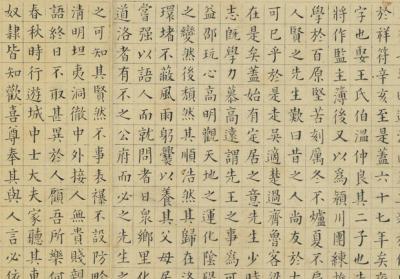 於祥符辛亥至是蓋六十七年矣
字也娶王氏伯溫仲良其二子
將作監主簿後又以為潁川團練
學於百原堅苦刻厲冬不爐夏不扇
人賢之先生歎曰昔之人尚友於
可已乎於是走吳適楚過齊魯客梁
在是矣蓋始有定居之意先生少
志既學力慕高遠謂先王之事為可
益邵玩心高明觀天地之運化陰陽
之變然後頹然其順浩然其歸在洛
環堵不蔽風雨躬爨以養其父母居
當強以語人而就問者日眾鄉里化
道洛者有不之公府而必之先生之
之可知其賢然不事表襮不設防畛
清明坦夷洞徹中外接人無貴賤親
語終日不取甚異於人顧吾所樂何
春秋時行遊城中士大夫家聽其車
奴隸皆知歡喜尊奉其與人言必依